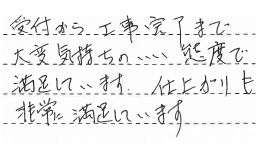 受付から工事完了まで
大変気持ちのいい態度で
満足しています 仕上がりも
非常に満足しています